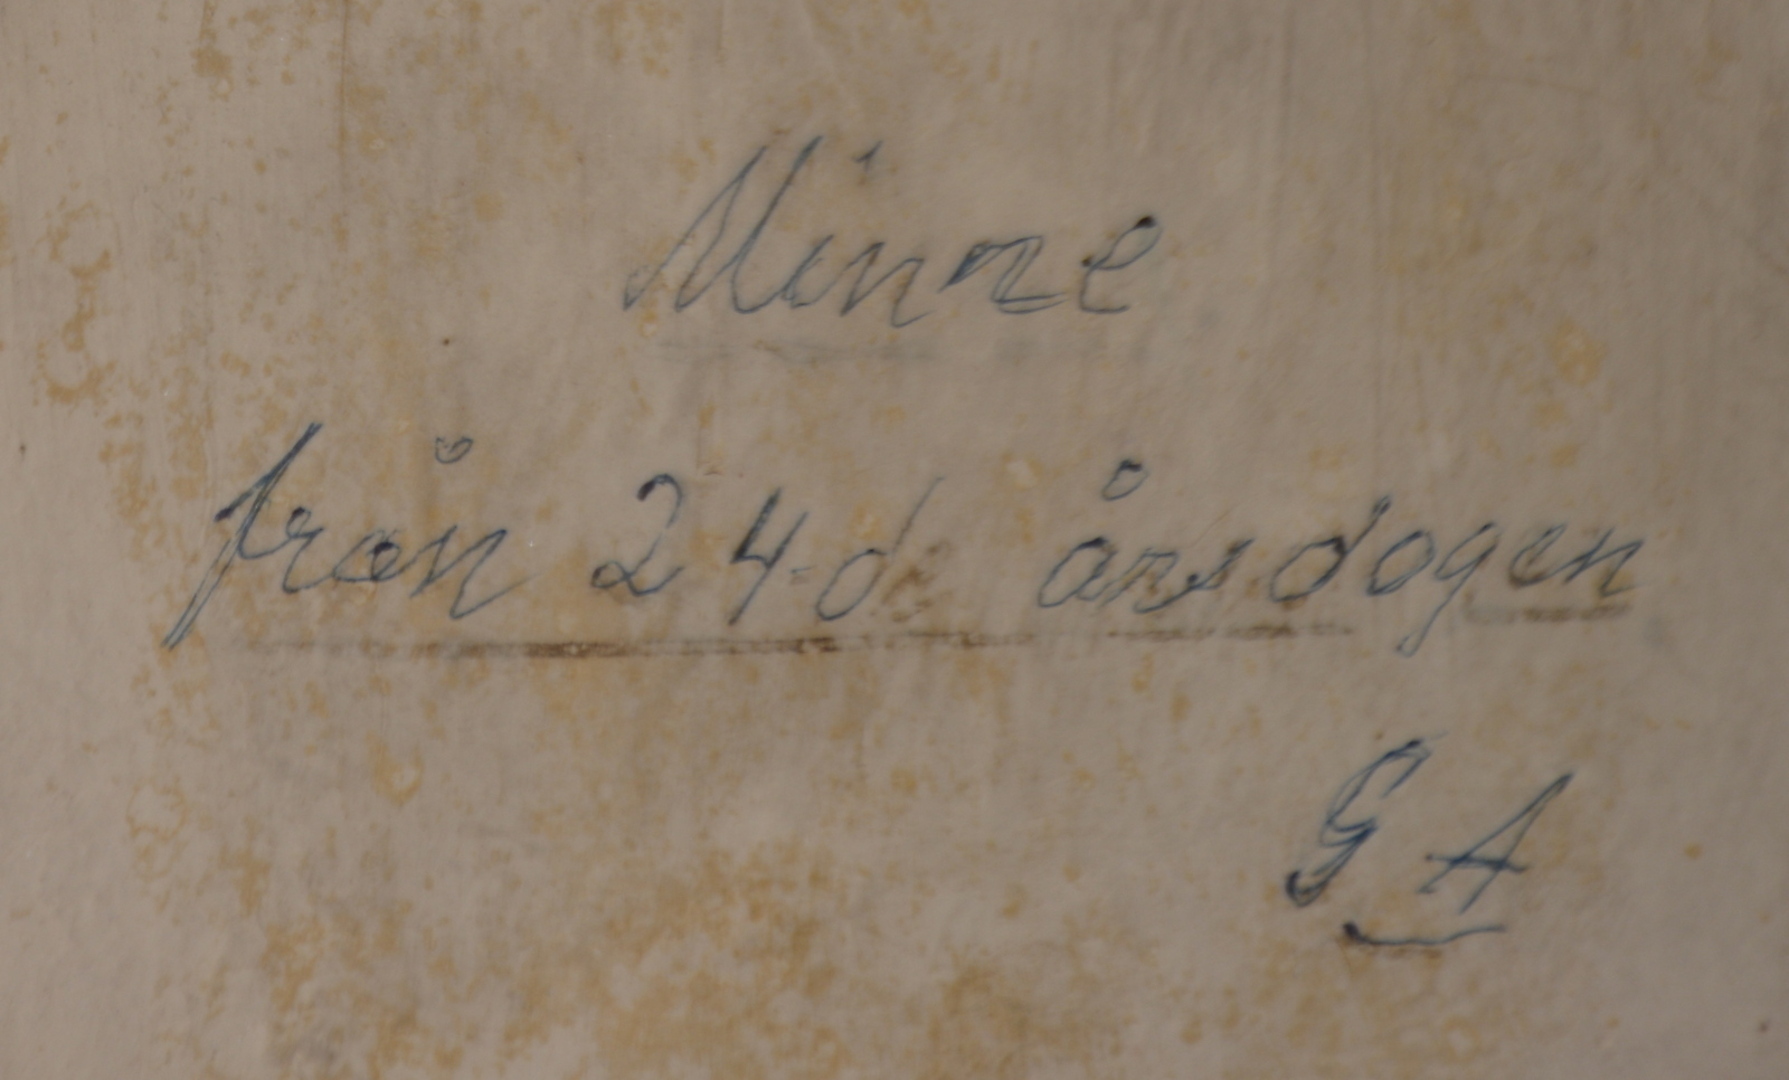 Minne
från 24-de årsdagen
G A